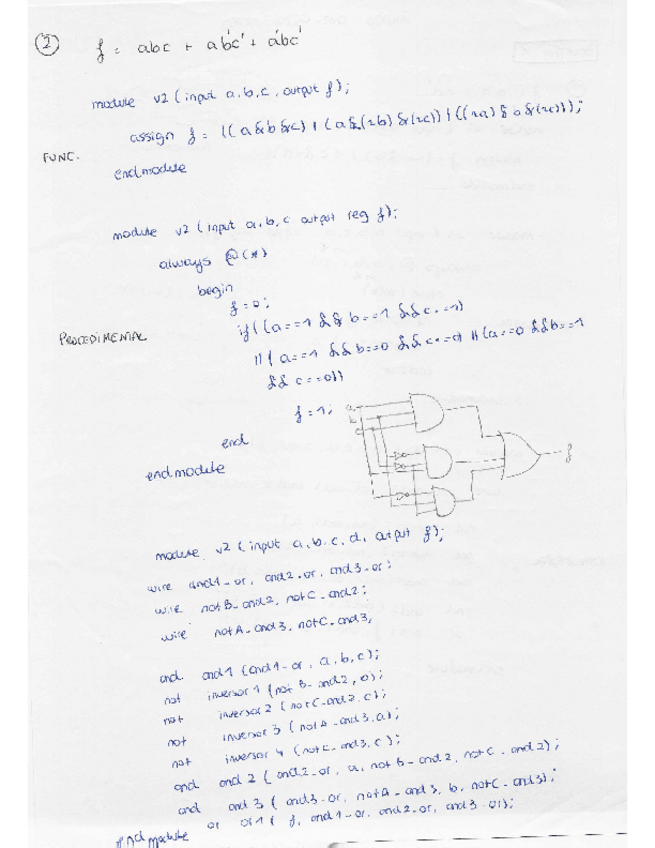 2
f = abc + ab'c' + a'bc'
module v2 (input a,b,c, output f);
assign f = ((a&b&c) | (a&(~b)&(~c)) | ((~a)&b&(~c)));
FUNC.
endmodule
module v2 (input a,b,c output reg f);
always @(*)
begin
f=0;
if((a==1 && b==1 && c==1)
PROCEDIMENTAL
||(a==1 && b==0 && c==0) ||(a==0 && b==1
&& c==0))
f=1;
a
b
c
f
end
endmodule
module v2 (input a,b,c,d, output f);
wire and1_or, and2_or, and3_or;
wire notB_and2, notC_and2;
wire notA_and3, notC_and3,
and and1 (and1_or, a,b,c);
not inversor1 (notB_and2, b);
not inversor2 (notC_and2, c);
not inversor3 (notA_and3, a);
not inversor4 (notC_and3, c);
and and2 (and2_or, a, notB_and2, notC_and2);
and and3 (and3_or, notA_and3, b, notC_and3);
or or1 (f, and1_or, and2_or, and3_or);
endmodule